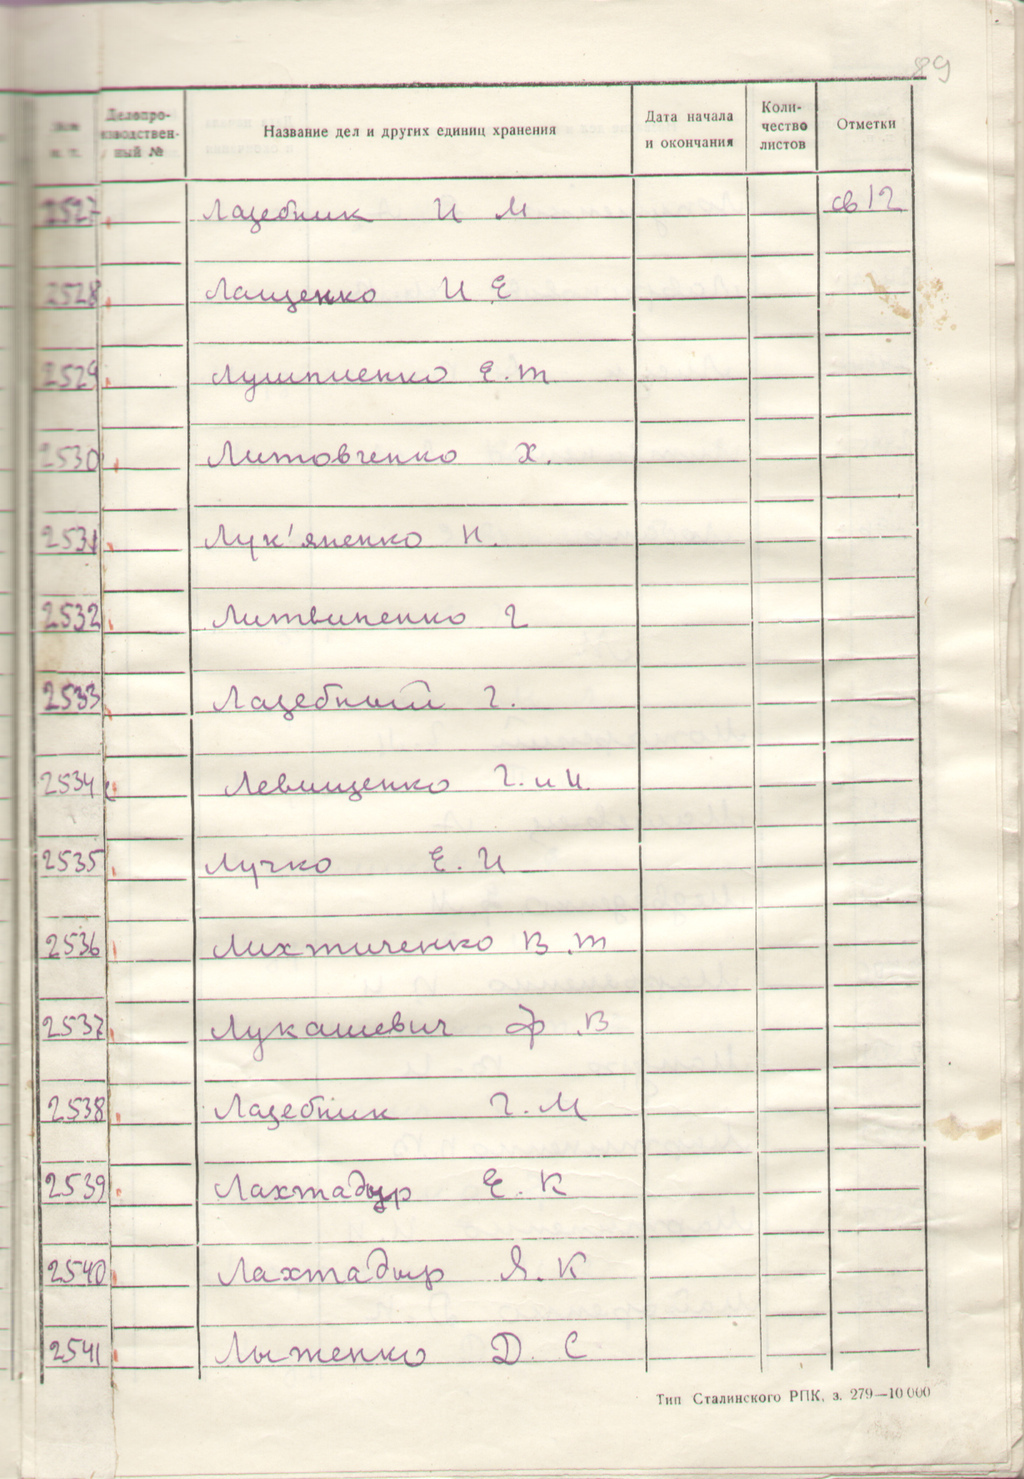 89
Делопро-
изводствен-
ный №
Название дел и других единиц хранения
Дата начала
и окончания
Коли-
чество
листов
Отметки
2527 Лазебник И М св 12
2528 Лащенко И Е
2529 Лушпиенко Е. т
2530 Литовченко Х.
2531 Лук'яненко Н.
2532 Литвиненко Г
2533 Лазебний Г.
2534 Левищенко Г. и И.
2535 Лучко Е. И
2536 Лихтиченко В. т
2537 Лукашевич Ф. В
2538 Лазебник Г. М
2539 Лахтадыр Е. К
2540 Лахтадыр Я. К
2541 Лыженко Д. С
Тип Сталинского РПК, з. 279—10 000